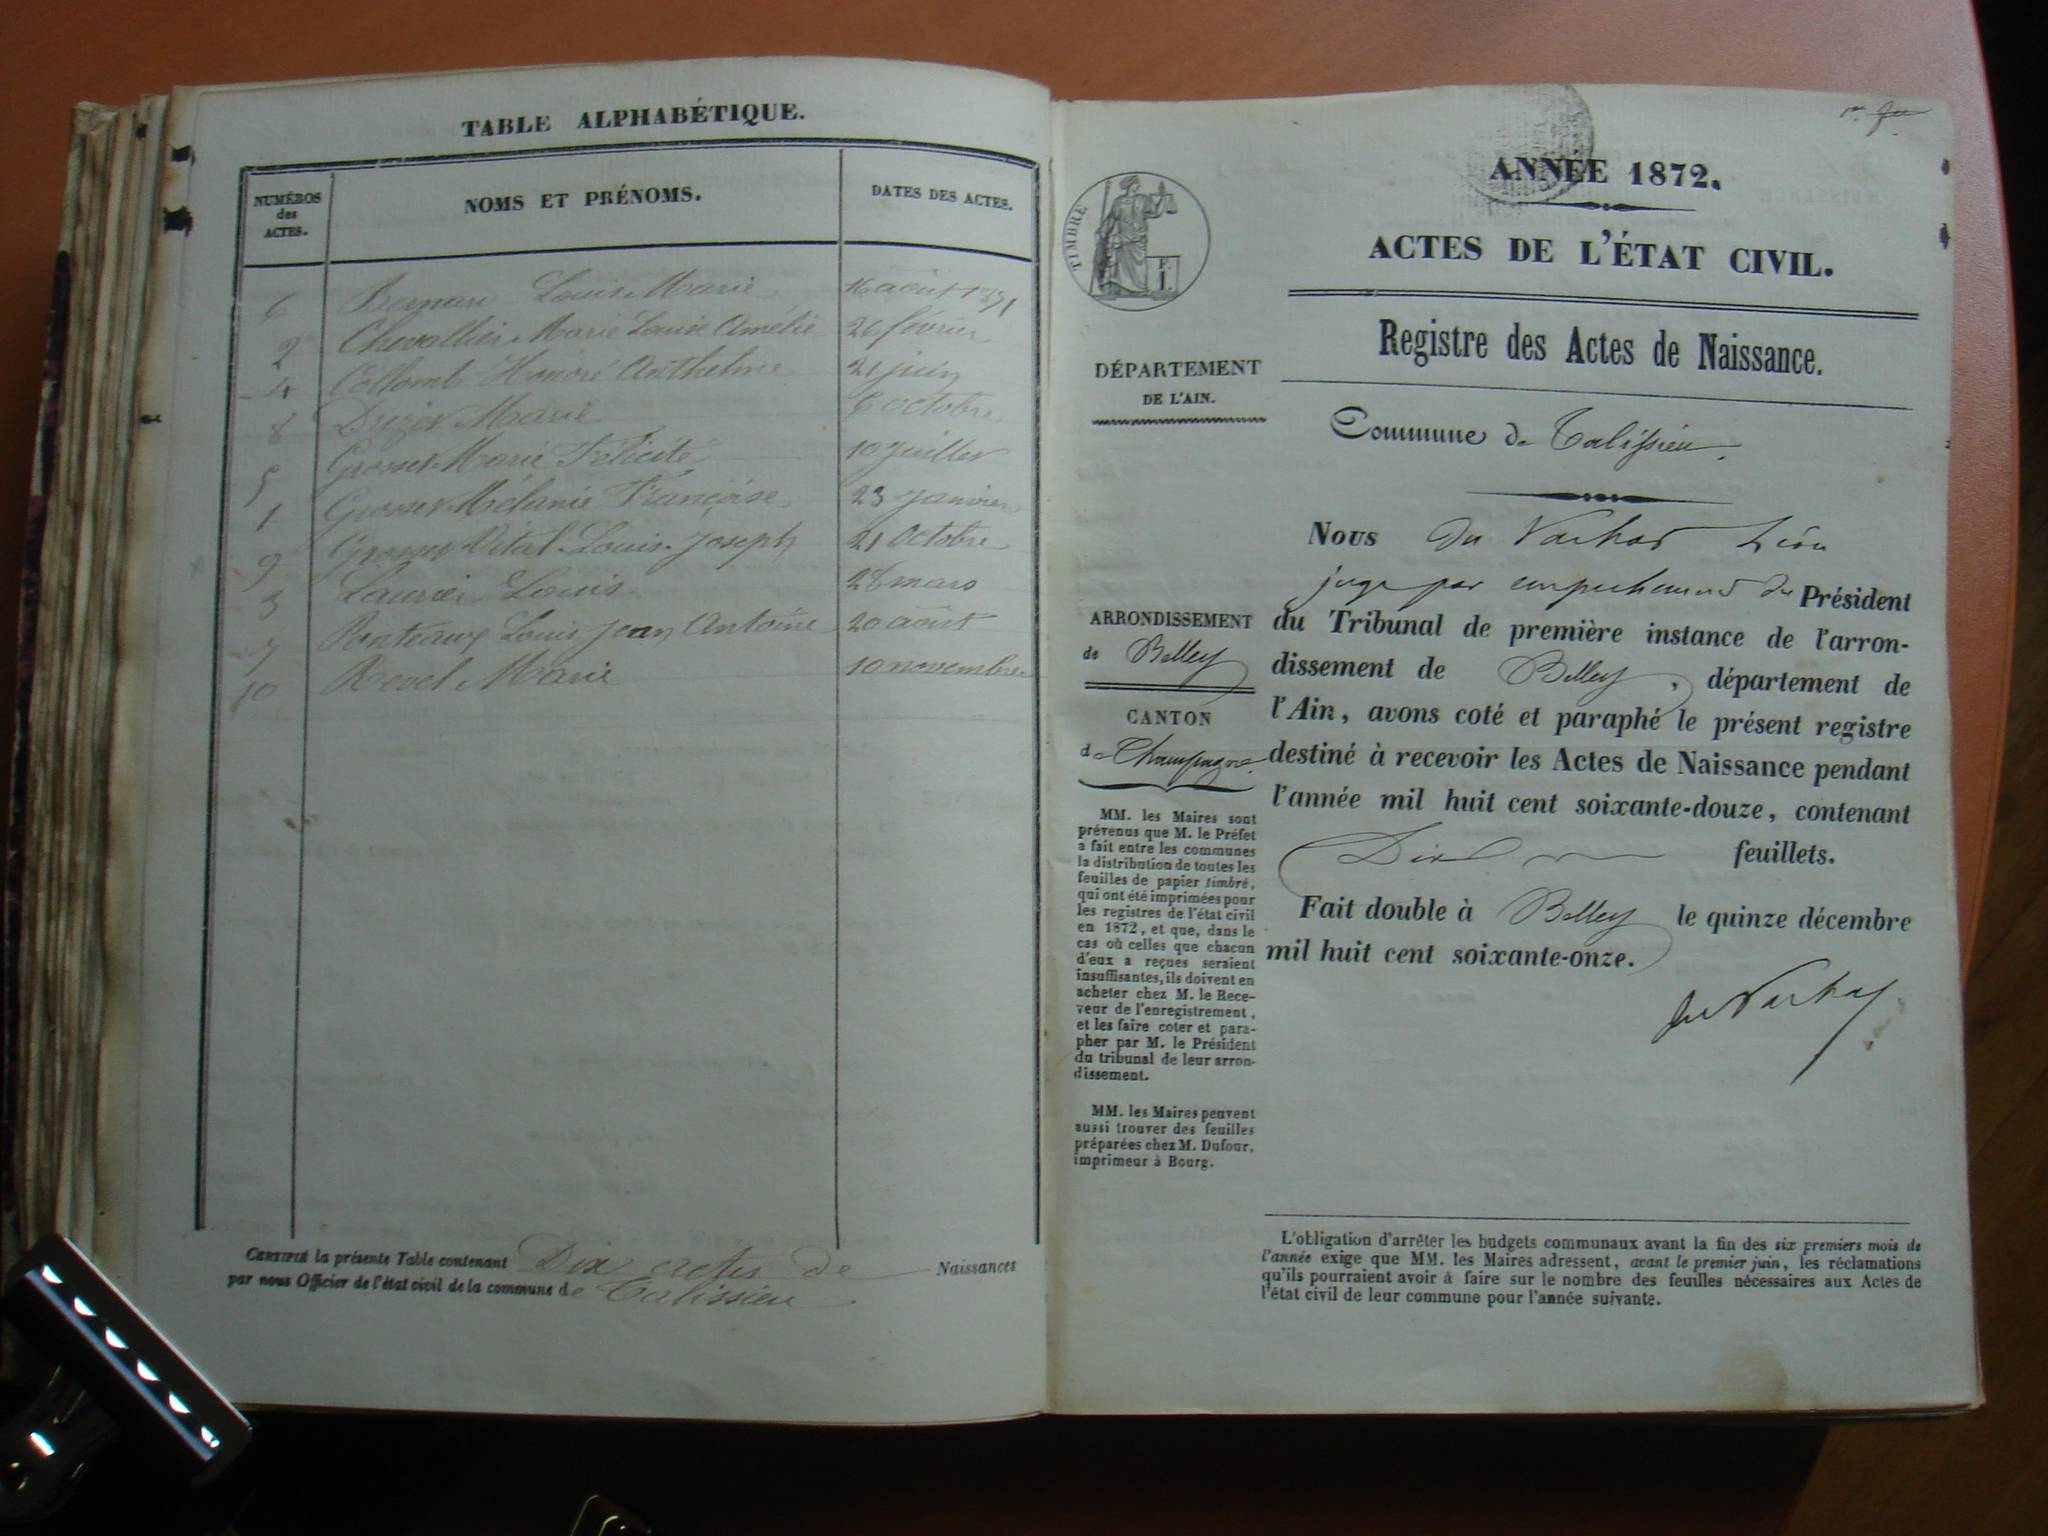 TABLE ALPHABÉTIQUE.
NUMÉROS des ACTES. NOMS ET PRÉNOMS. DATES DES ACTES.
6 Louis Marie 16 août 1871
2 Chevallier Marie Louise Amélie 26 février
4 Collomb Honoré Anthelme 21 juin
8 Marie 6 octobre
5 Grosset Marie Félicité 10 juillet
1 Grosset Mélanie Françoise 23 janvier
9 Grosset Vital Louis Joseph 21 Octobre
3 Laurier Louis 28 mars
7 Louis Jean Antoine 20 août
10 Revel Marie 10 novembre
CERTIFIÉ la présente Table contenant Dix actes de Naissances
par nous Officier de l'état civil de la commune de Talissieu
ANNÉE 1872.
ACTES DE L'ÉTAT CIVIL.
TIMBRE
F. 1.
Registre des Actes de Naissance.
DÉPARTEMENT
DE L'AIN.
Commune de Talissieu.
ARRONDISSEMENT
de Belley
CANTON
de Champagne.
MM. les Maires sont
prévenus que M. le Préfet
a fait entre les communes
la distribution de toutes les
feuilles de papier timbré,
qui ont été imprimées pour
les registres de l'état civil
en 1872, et que, dans le
cas où celles que chacun
d'eux a reçues seraient
insuffisantes, ils doivent en
acheter chez M. le Rece-
veur de l'enregistrement,
et les faire coter et para-
pher par M. le Président
du tribunal de leur arron-
dissement.
MM. les Maires peuvent
aussi trouver des feuilles
préparées chez M. Dufour,
imprimeur à Bourg.
Nous du Léon
juge par empechement du Président
du Tribunal de première instance de l'arron-
dissement de Belley, département de
l'Ain, avons coté et paraphé le présent registre
destiné à recevoir les Actes de Naissance pendant
l'année mil huit cent soixante-douze, contenant
Dix feuillets.
Fait double à Belley le quinze décembre
mil huit cent soixante-onze.
L'obligation d'arrêter les budgets communaux avant la fin des six premiers mois de
l'année exige que MM. les Maires adressent, avant le premier juin, les réclamations
qu'ils pourraient avoir à faire sur le nombre des feuilles nécessaires aux Actes de
l'état civil de leur commune pour l'année suivante.